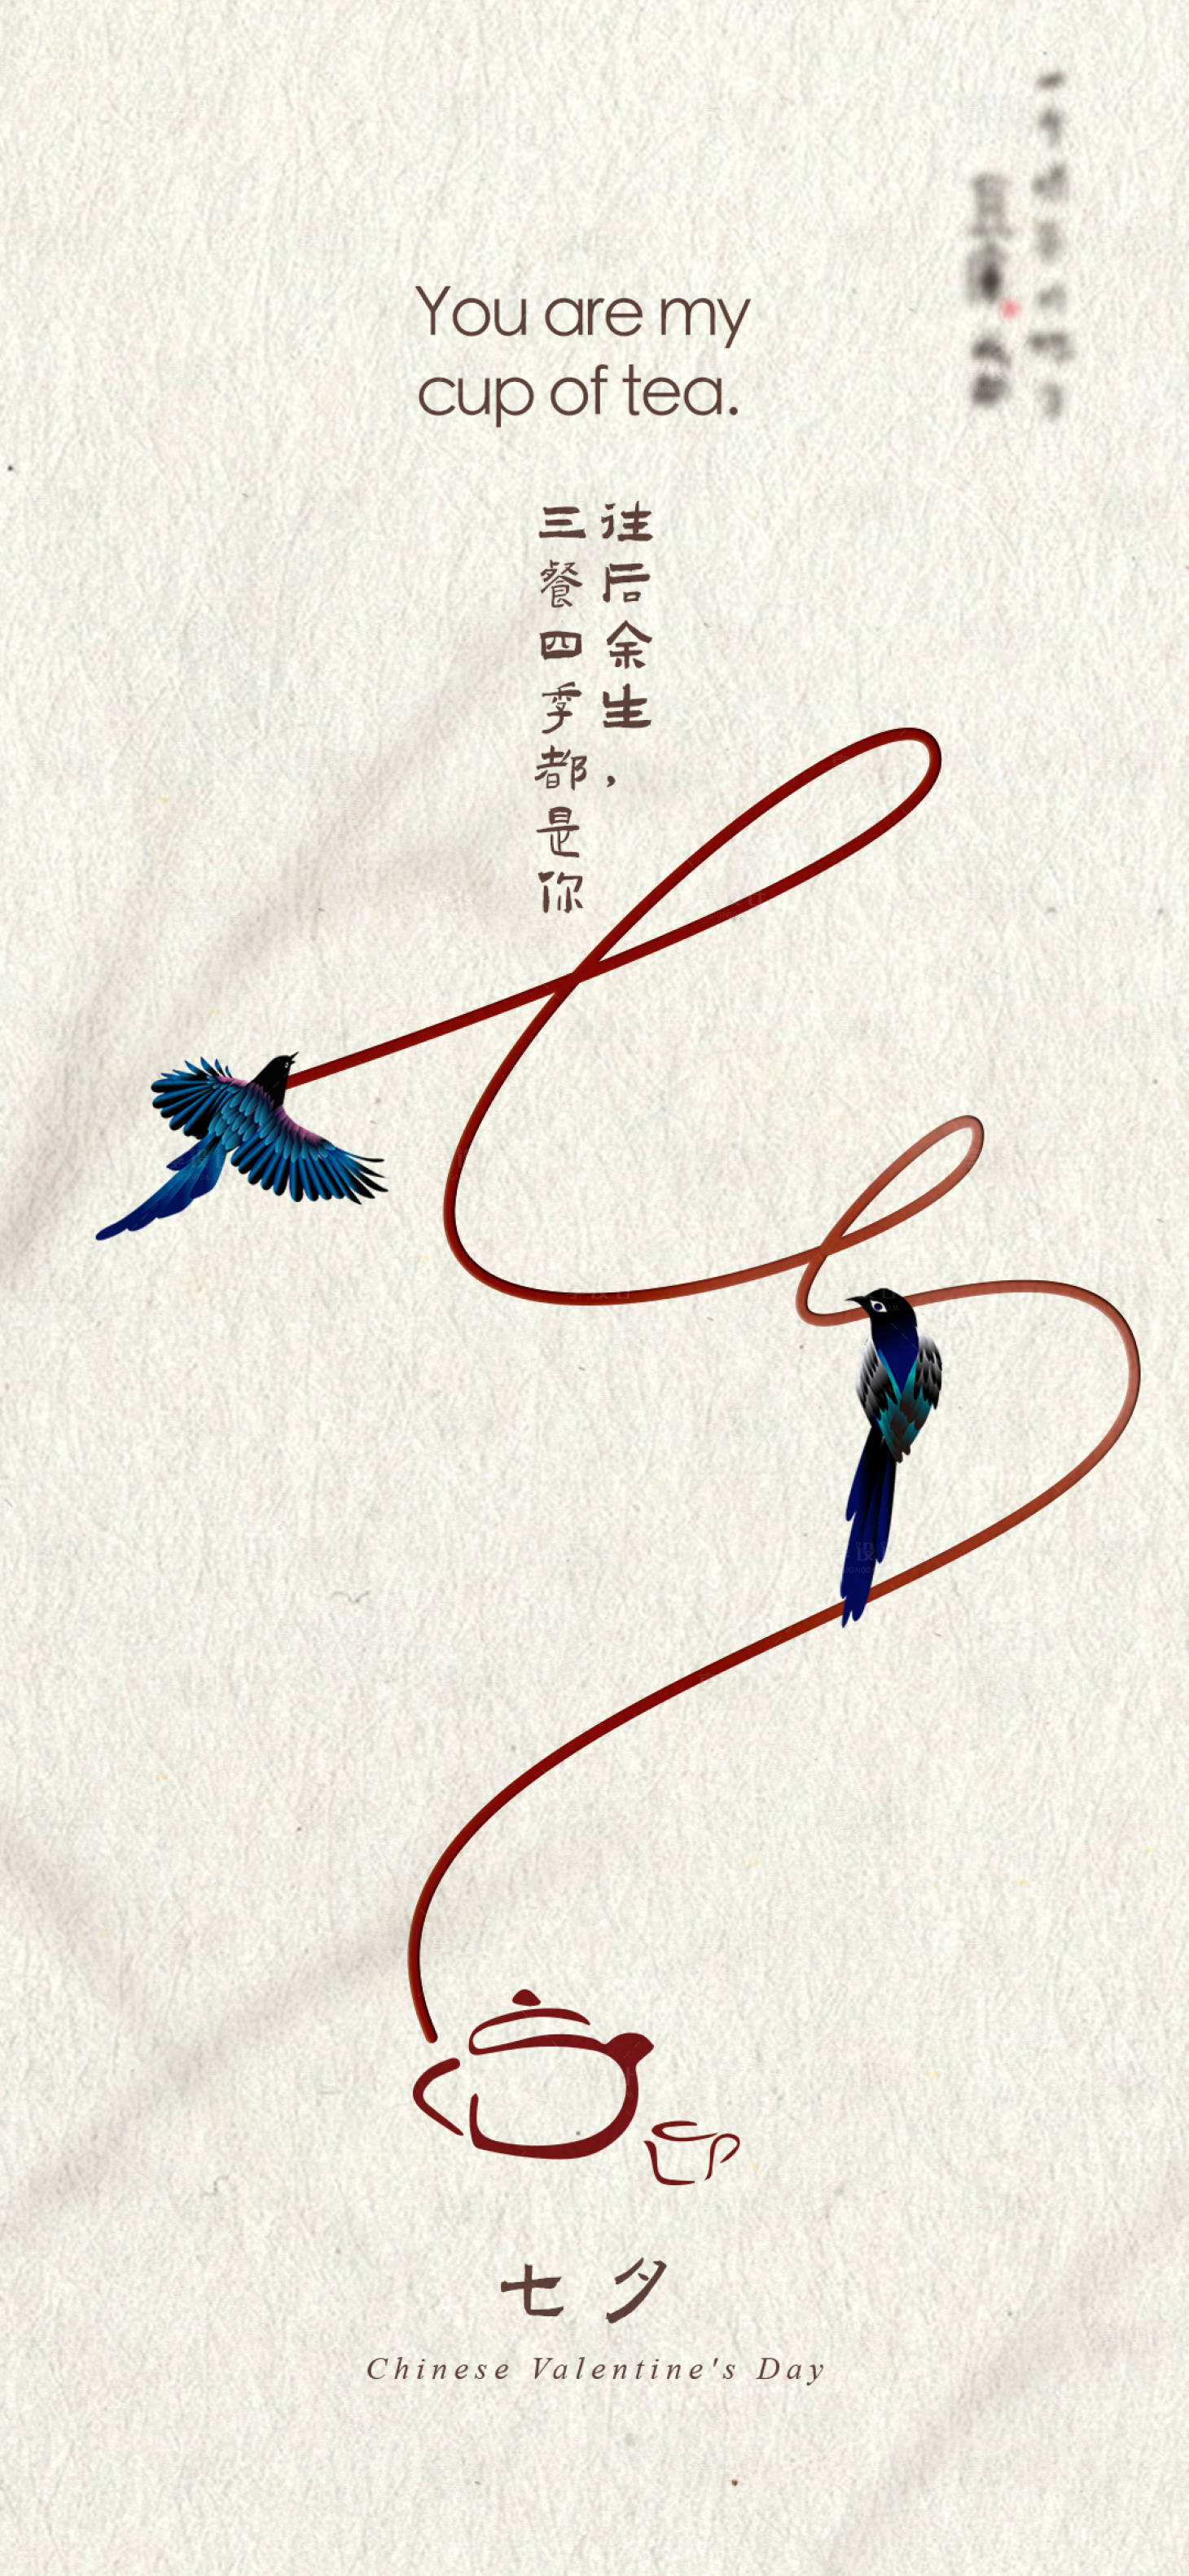 You are my
cup of tea.
往后余生，
三餐四季都是你
七夕
Chinese Valentine's Day